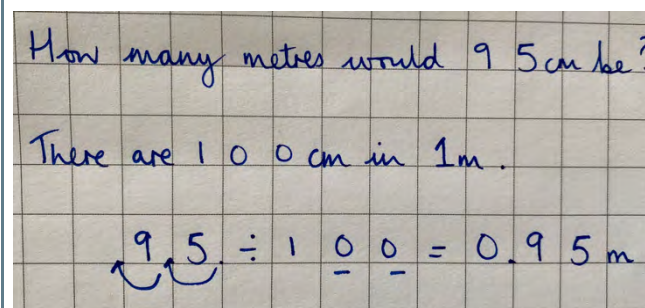 How many metres would 95cm be?
There are 100cm in 1m.
95. ÷ 100 = 0.95m